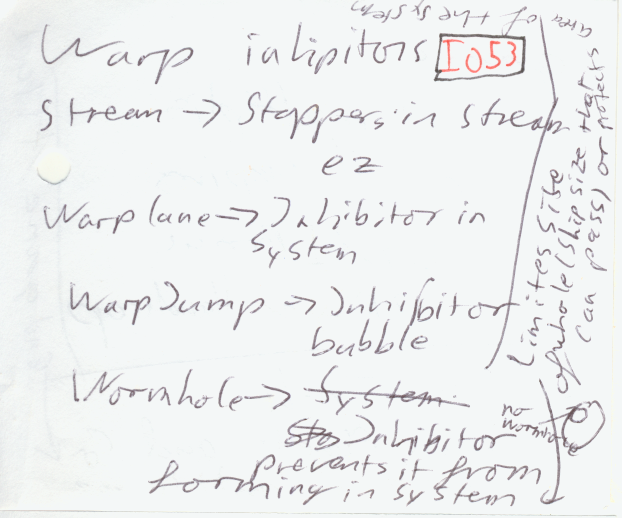 Warp inhipitors IO53
Stream → Stoppers in stream
ez
Warp lane → Inhibitor in
System
Warp Jump → Inhibitor
bubble
Wormhole → System
Sto Inhibitor
prevents it from
forming in system
no
wormhole
Limites size
of whole (ship size that
can pass) or protects
area
of the system